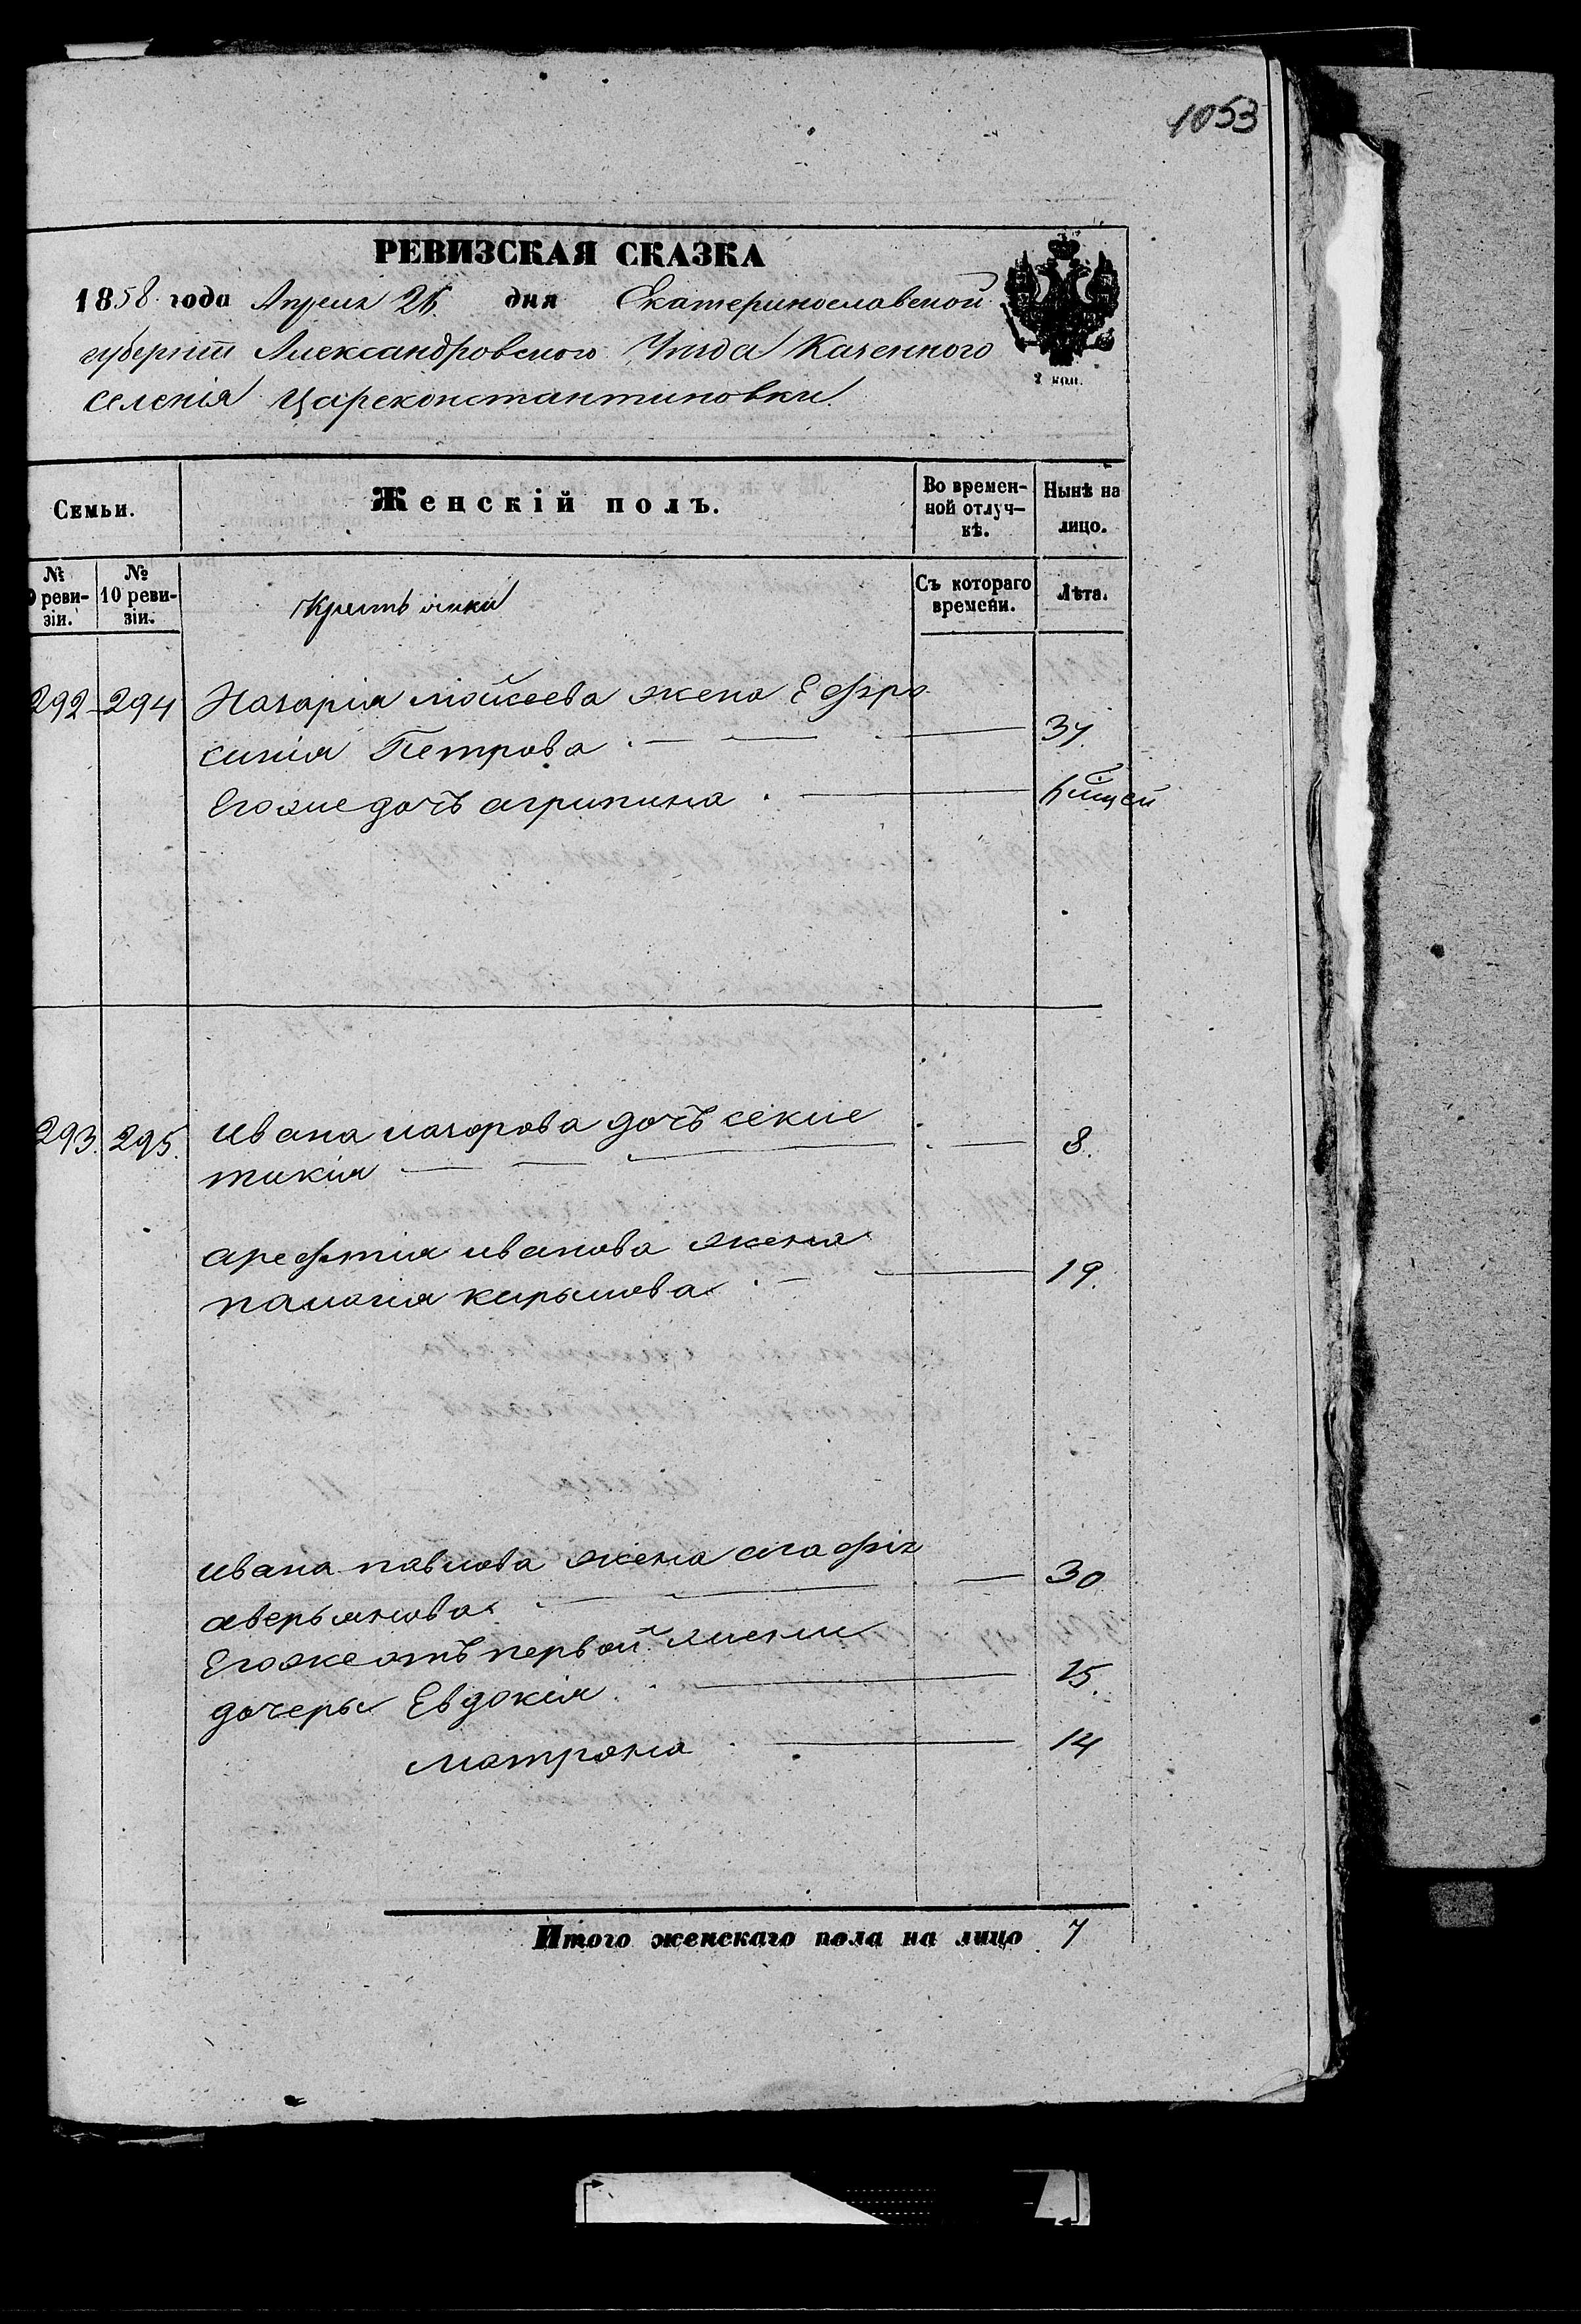 1053
РЕВИЗСКАЯ СКАЗКА
1858 года Апреля 26 дня Екатеринославской
губерніи Александровского Уезда Казенного
селенія Цареконстантиновки
2 коп.
Семьи.
Женскій полъ.
Во времен-
ной отлуч-
кѣ.
Нынѣ на
лицо.
№
реви-
зіи.
№
10 реви-
зіи.
Съ котораго
времени.
Лѣта.
292 294 Назарія Мойсеева жена Ефро
синія Петрова 37.
Егоже дочъ агрипина
293. 295. Ивана назарова дочъ секле
тикія 8.
арефтія иванова жена
палагія кирылова 19.
Ивана павлова жена агафія 30
аверьянова
Егоже отъ первой жены
дочеры Евдокія 15.
матрона 14
Итого женскаго пола на лицо 7